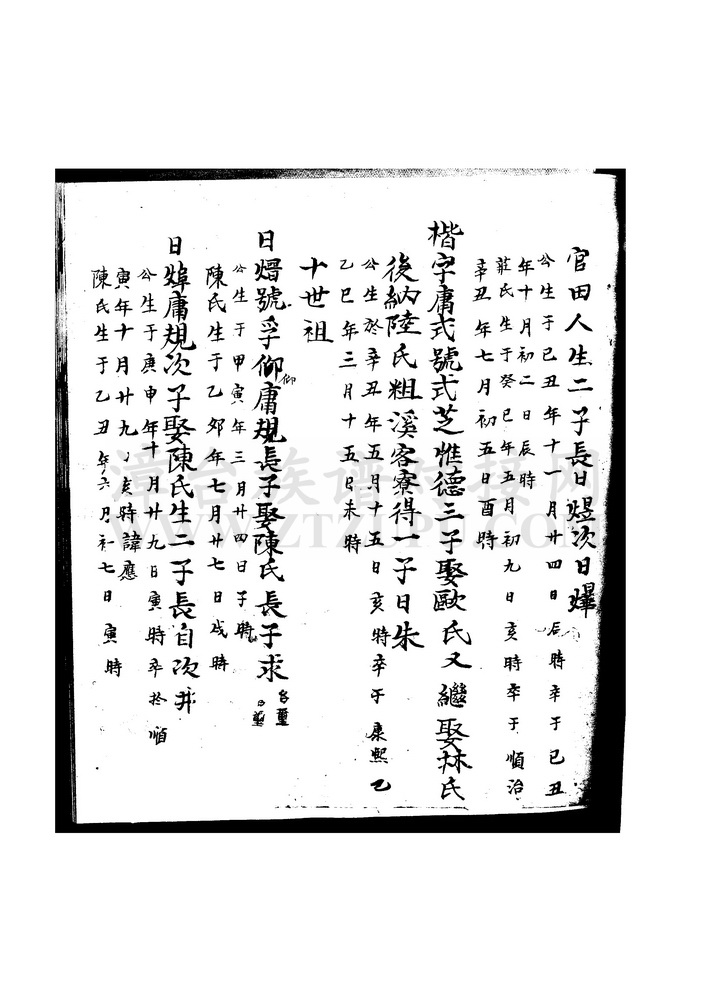 官田人生二子長曰煜次曰㷸
公生于己丑年十一月廿四日辰時卒于己丑
年十月初二日辰時
莊氏生于癸巳年五月初九日亥時卒于順治
辛丑年七月初五日酉時
楷字庸式號式芝惟德三子娶歐氏又繼娶林氏
後納陸氏粗溪客寮得一子曰朱
公生於辛丑年五月十五日亥時卒于康熙乙
乙巳年三月十五日未時
十世祖
日熠號孚仰庸規長子娶陳氏長子求
仰
公生于甲寅年三月廿四日子時
陳氏生于乙卯年七月廿七日戌時
日焯庸規次子娶陳氏生二子長自次井
公生于庚申年十月廿九日寅時卒於順
寅年十月廿九亥時諱應
陳氏生于乙丑年六月初七日寅時
漳台族谱对接网
WWW.ZTZUPU.COM